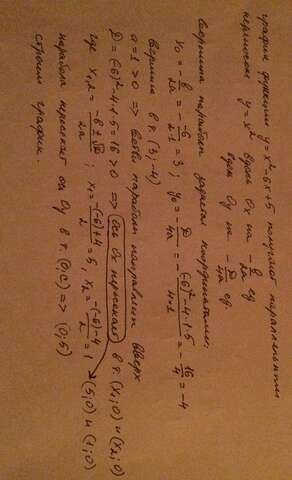 график функции y = x² - 6x + 5 получают параллельным
переносом y = x² вдоль Ox на - b/2a ед.
вдоль Oy на - D/4a ед.
Вершина параболы задаётся координатами:
x₀ = - b/2a = - -6/2·1 = 3 ; y₀ = - D/4a = - (-6)² - 4·1·5/4·1 = - 16/4 = -4
Вершина в т. (3; -4)
a = 1 > 0 => ветви параболы направлены вверх
D = (-6)² - 4·1·5 = 16 > 0 => ось Ox пересекает в т. (x₁; 0) и (x₂; 0)
где x₁,₂ = -b ± √D/2a ; x₁ = -(-6)+4/2 = 5, x₂ = -(-6)-4/2 = 1 (5; 0) и (1; 0)
парабола пересекает ось Oy в т. (0; c) => (0; 5)
строим график.